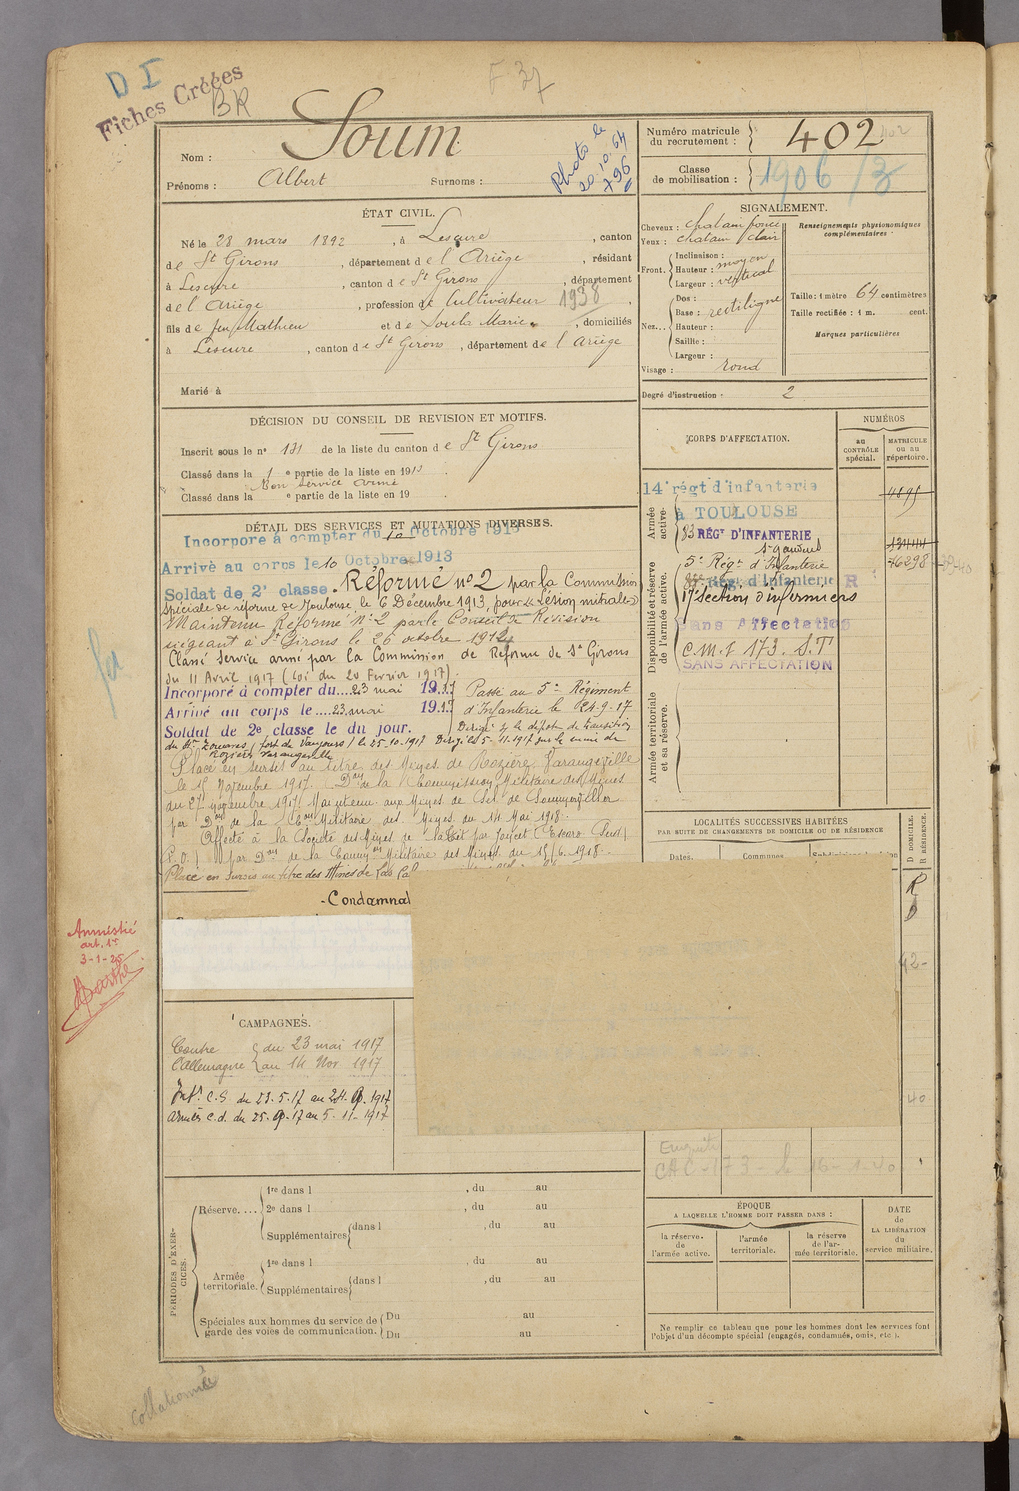 D I
Fiches Créées
BR
F 37
Nom : Soum
Prénoms : Albert Surnoms :
Photo le
20.10.64
796
Numéro matricule
du recrutement : 402
402
Classe
de mobilisation : 1906/3
ÉTAT CIVIL.
Né le 28 mars 1892, à Lescure, canton
de St Girons, département de l'Ariège, résidant
à Lescure, canton de St Girons, département
de l'Ariège, profession de Cultivateur 1938,
fils de feu Mathieu et de Soula Marie, domiciliés
à Lescure, canton de St Girons, département de l'Ariège
Marié à
SIGNALEMENT.
Cheveux : chatain foncé
Yeux : chatain clair
Front. Inclinaison :
Hauteur : moyen
Largeur : vertical
Nez... Dos :
Base : rectiligne
Hauteur :
Saillie :
Largeur :
Visage : rond
Renseignements physionomiques
complémentaires :
Taille : 1 mètre 64 centimètres
Taille rectifiée : 1 m. cent.
Marques particulières
Degré d'instruction : 2
DÉCISION DU CONSEIL DE REVISION ET MOTIFS.
Inscrit sous le n° 131 de la liste du canton de St Girons
Classé dans la 1e partie de la liste en 1913
Bon service armé
Classé dans la e partie de la liste en 19
CORPS D'AFFECTATION.
NUMÉROS
au
CONTRÔLE
spécial.
MATRICULE
ou au
répertoire.
Armée
active.
14e régt d'infanterie
à TOULOUSE
4895
83 RÉGt D'INFANTERIE
St Gaudens
13444
Disponibilité et réserve
de l'armée active.
5e Régt d'Infanterie
16298
régt d'Infanterie R
17e Section d'infirmiers
Sans Affectation
C.M.I 173. S.T
SANS AFFECTATION
Armée territoriale
et sa réserve.
DÉTAIL DES SERVICES ET MUTATIONS DIVERSES.
Incorporé à compter du 10 Octobre 1913
Arrivé au corps le 10 Octobre 1913
Soldat de 2e classe. Réformé n°2 par la Commission
spéciale de réforme de Toulouse le 6 Décembre 1913, pour "Lésion mitrale"
Maintenu Réformé N°2 par le Conseil de Révision
siégeant à St Girons le 26 octobre 1914
Classé Service armé par la Commission de Réforme de St Girons
du 11 Avril 1917 (loi du 20 Février 1917)
Incorporé à compter du 23 mai 1917 Passé au 5e Régiment
Arrivé au corps le 23 mai 1917 d'Infanterie le 24-9-17
Soldat de 2e classe le du jour. Dirigé s/ le dépôt de transition
du Zouaves (fort de Vaujours) le 25-10-1917 Dirigé le 5-11-1917 sur la mine de
Rozières Varangéville
Placé en sursis au titre des Mines de Rozière Varangéville
le 15 Novembre 1917. Don de la Commission Militaire des Mines
du 27 novembre 1917. Maintenu aux Mines de Sel de Sommerviller
par Don de la Con Militaire des Mines du 14 Mai 1918.
Affecté à la Société des Mines de
(P.O.) par Don de la Common Militaire des Mines du 15/6-1918.
Placé en sursis au titre des Mines de
Condamnat
LOCALITÉS SUCCESSIVES HABITÉES
PAR SUITE DE CHANGEMENTS DE DOMICILE OU DE RÉSIDENCE
Dates. Communes.
D. DOMICILE.
R. RÉSIDENCE.
R
D
42-
40
Amnistié
art. 1er
3-1-25
CAMPAGNES.
Contre du 23 mai 1917
l'Allemagne au 14 Nov 1917
Intr C.S. du 23.5.17 au 24.9.1917
Armées C.d. du 25.9.17 au 5-11-1917
Enquête
CAC-173- le 16-1-40
PÉRIODES D'EXER-
CICES.
Réserve.... 1re dans l , du au
2e dans l , du au
Supplémentaires dans l , du au
Armée
territoriale. 1re dans l , du au
Supplémentaires dans l , du au
Spéciales aux hommes du service de
garde des voies de communication. Du au
Du au
ÉPOQUE
A LAQUELLE L'HOMME DOIT PASSER DANS :
la réserve
de
l'armée active.
l'armée
territoriale.
la réserve
de l'ar-
mée territoriale.
DATE
de
LA LIBÉRATION
du
service militaire.
Ne remplir ce tableau que pour les hommes dont les services font
l'objet d'un décompte spécial (engagés, condamnés, omis, etc.).
Collationné